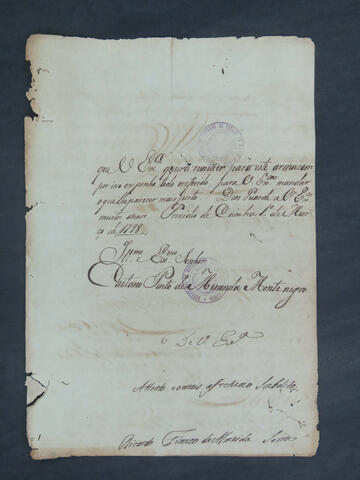 que V. Exª queira remetter para este armazem
por isso em junho tudo referido para V. Exª mandar
o que lhe parecer mais justo Deos Guarde a V. Exª
muitos annos Prezidio de Coimbra 1º de Mar
ço de 1798
Illmo Exmo Senhor
Caetano Pinto de Miranda Montenegro
De V. Exª
Attento e mais
Ricardo Franco de Almeida Serra